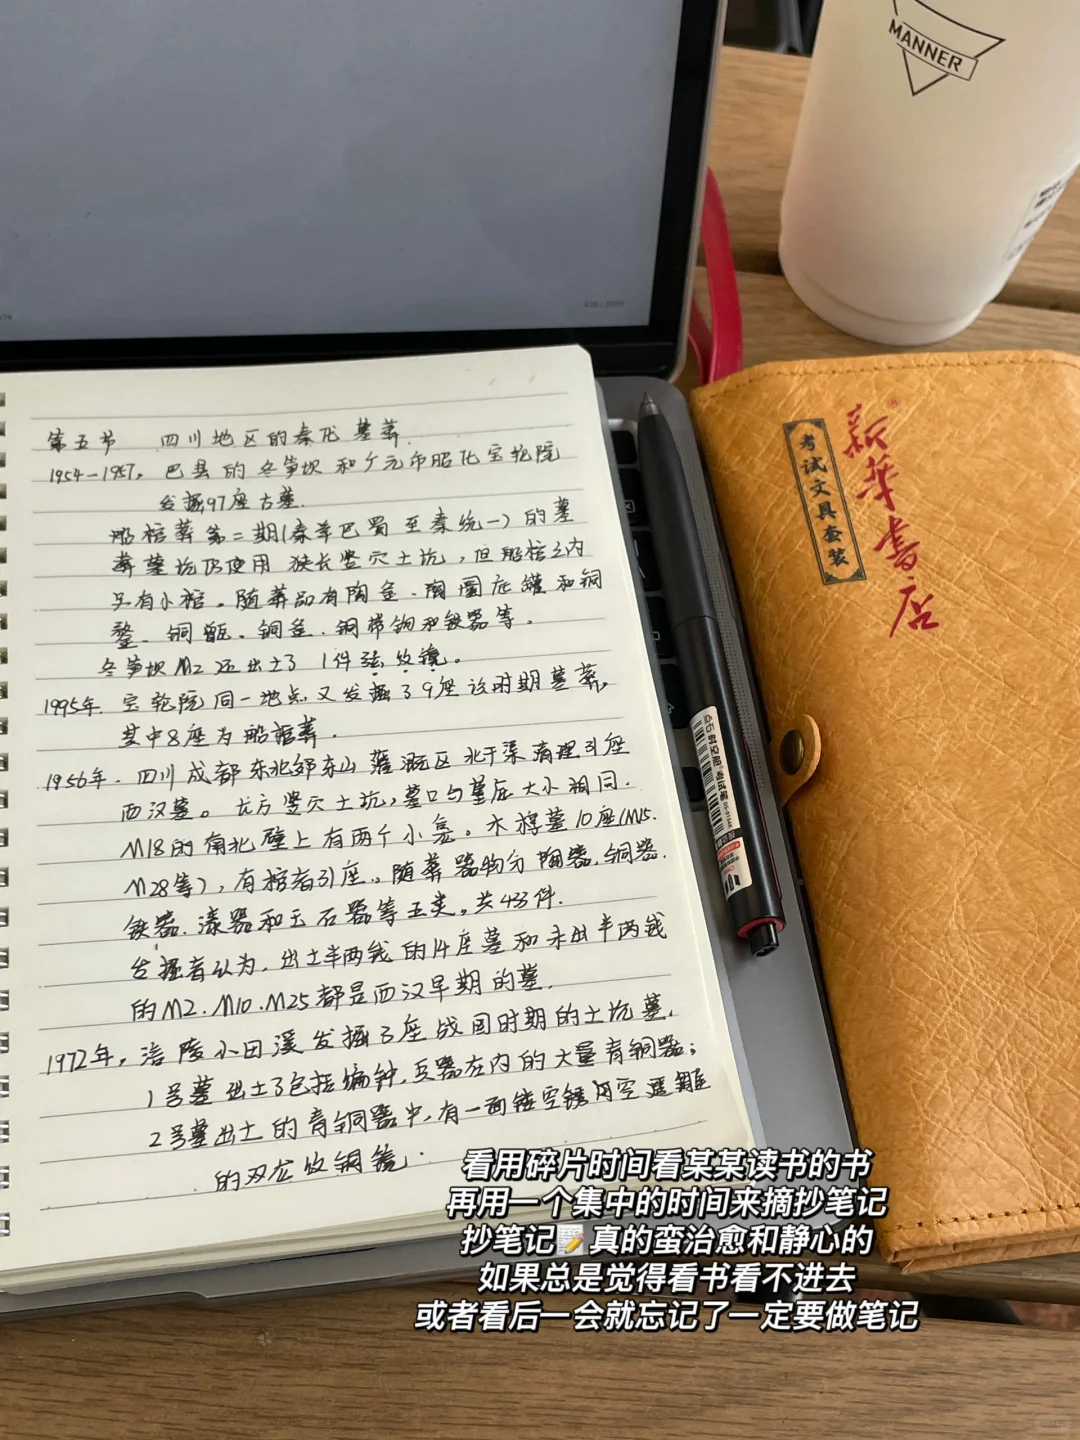 MANNER
第五节 四川地区的秦代墓葬.
1954-1957。巴县的冬笋坝和广元市昭化宝轮院
发掘97座古墓.
船棺葬第二期(秦举巴蜀至秦统一)的墓
葬墓坑仍使用狭长竖穴土坑,但船棺之内
又有小棺。随葬品有陶釜、陶圜底罐和铜
鍪、铜甑、铜釜、铜带钩和铁器等。
冬笋坝M2还出土了1件弦纹镜。
1995年.宝轮院同一地点又发掘了9座该时期墓葬,
其中8座为船棺葬.
1956年.四川成都东北郊东山灌溉区北干渠清理31座
西汉墓。长方竖穴土坑,墓口与墓底大小相同.
M18的南北壁上有两个小龛。木椁墓10座(M15.
M28等),有棺者31座。随葬器物分陶器.铜器.
铁器.漆器和玉石器等五类,共433件.
发掘者认为,出土半两钱的14座墓和未出半两钱
的M2.M10.M25都是西汉早期的墓.
1972年,涪陵小田溪发掘3座战国时期的土坑墓,
1号墓出土了包括编钟,兵器在内的大量青铜器;
2号墓出土的青铜器中,有一面镂空透雕
的双龙纹铜镜.
新華書店
考试文具套装
看用碎片时间看某某读书的书
再用一个集中的时间来摘抄笔记
抄笔记📝真的蛮治愈和静心的
如果总是觉得看书看不进去
或者看后一会就忘记了一定要做笔记